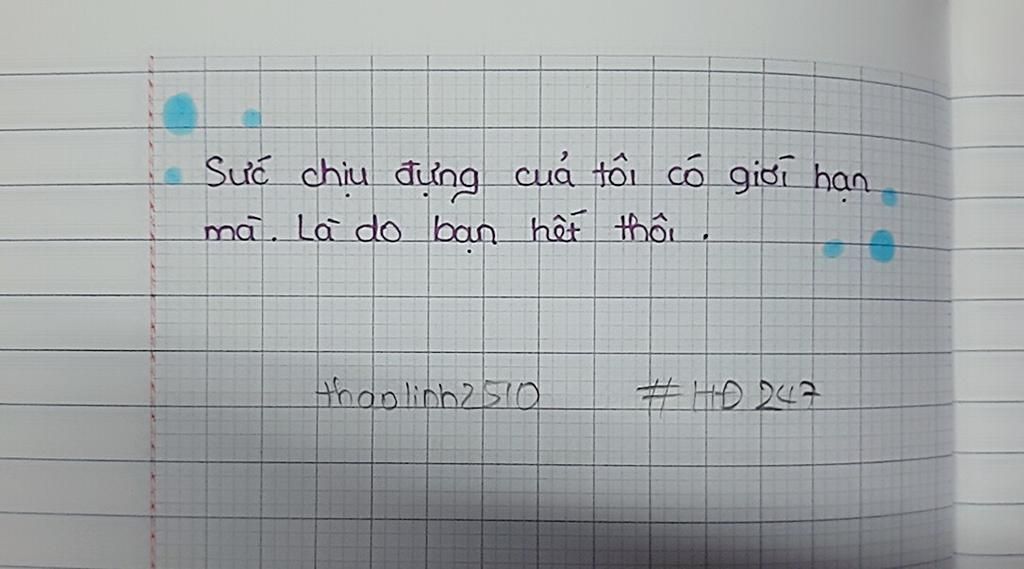 Sức chịu đựng của tôi có giới hạn
mà. Là do bạn hết thôi.
thaolinh2510 #HĐ247